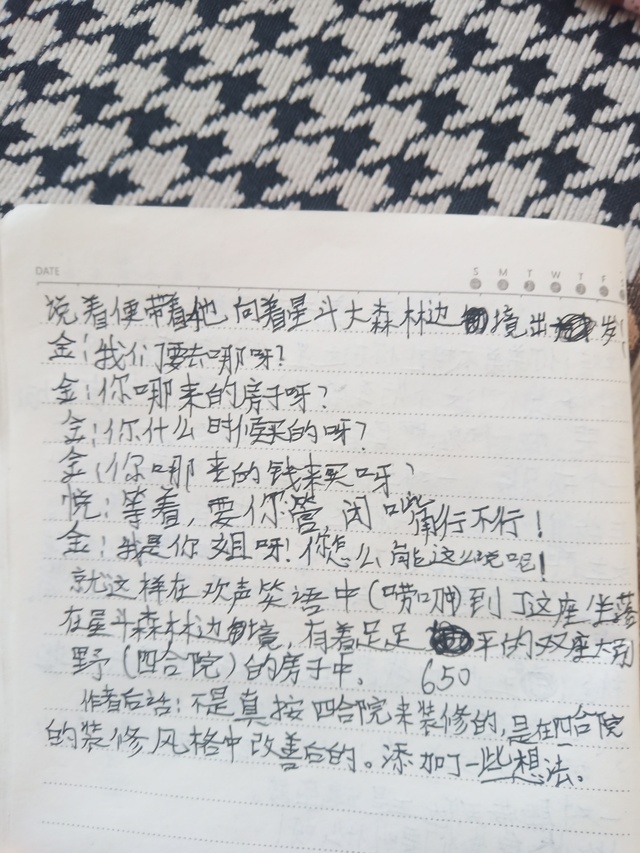 DATE
S M T W T F
说着便带着他向着星斗大森林边境出
金:我们要去哪呀?
金:你哪来的房子呀?
金:你什么时候买的呀?
金:你哪来的钱来买呀?
悦:等着,要你管,闭嘴行不行!
金:我是你姐呀!你怎么能这么说呢!
就这样在欢声笑语中(唠叨)到了这座坐落
在星斗森林边境,有着足足650平的双座大别
野(四合院)的房子中。
作者后话:不是真按四合院来装修的,是在四合院
的装修风格中改善后的。添加了一些想法。